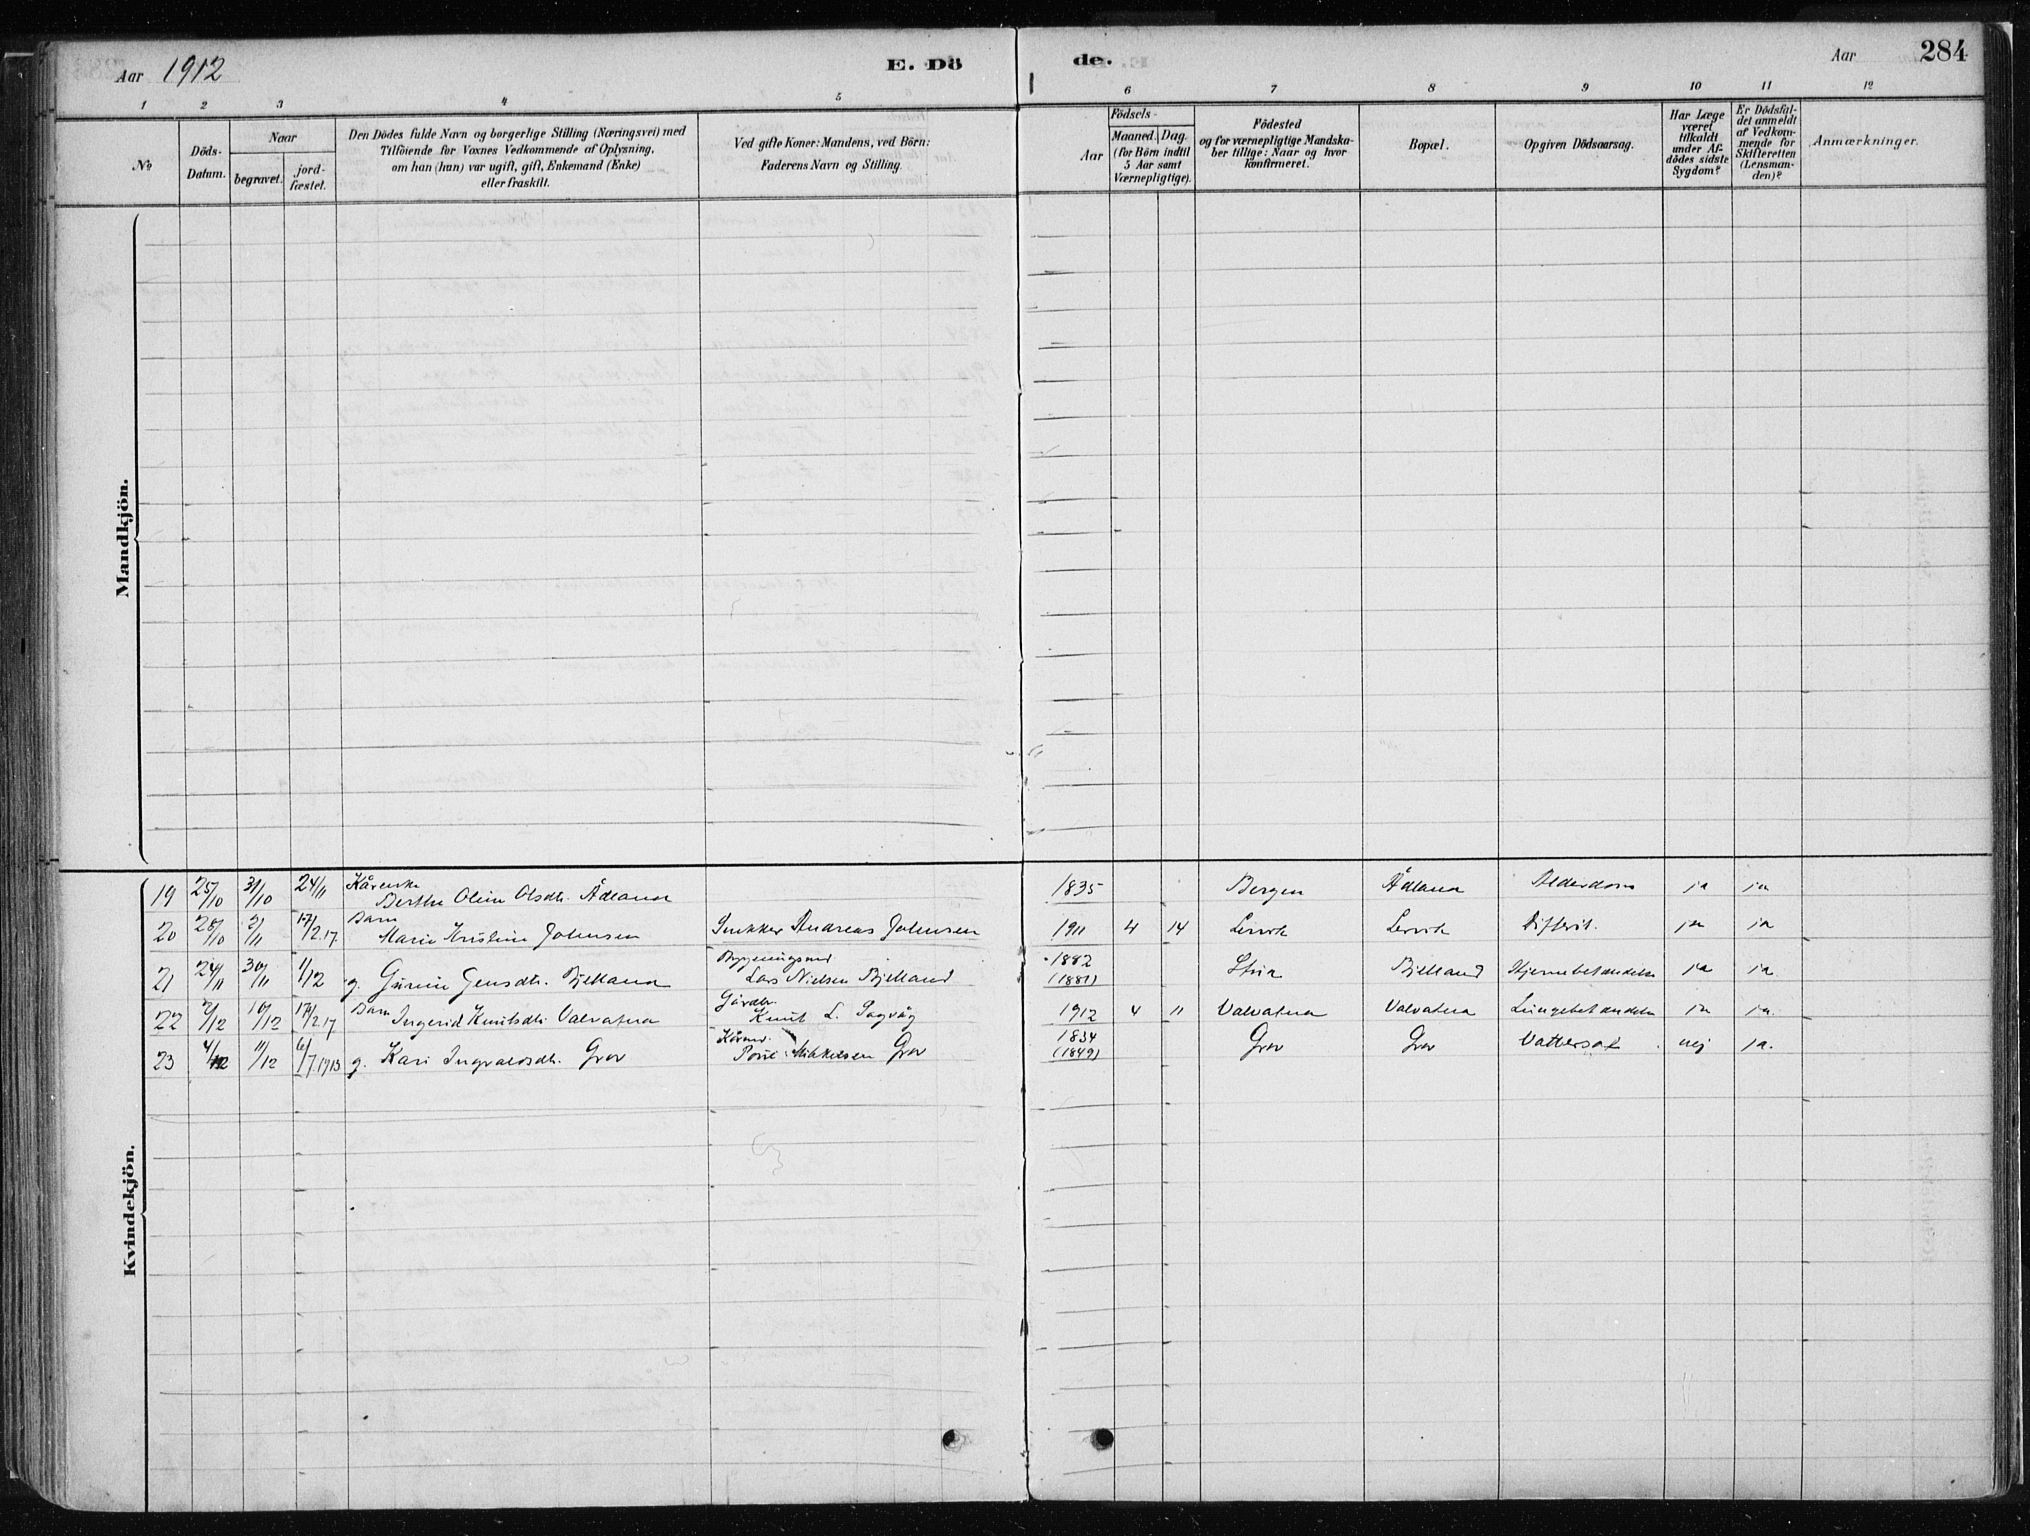 Aar 1912
E. Dö
de.
Aar
284
1 2 3 4 5 6 7 8 9 10 11 12
No
Döds-
Datum.
Naar
begravet.
jord-
fæstet.
Den Dödes fulde Navn og borgerlige Stilling (Næringsvei) med
Tilföiende for Voxnes Vedkommende af Oplysning,
om han (hun) var ugift, gift, Enkemand (Enke)
eller fraskilt.
Ved gifte Koner: Mandens, ved Börn:
Faderens Navn og Stilling.
Aar
Födsels-
Maaned. Dag.
(for Börn indtil
5 Aar samt
Værnepligtige).
Födested
og for værnepligtige Mandska-
ber tillige: Naar og hvor
konfirmeret.
Bopæl.
Opgiven Dödsaarsag.
Har Læge
været
tilkaldt
under Af-
dödes sidste
Sygdom?
Er Dödsfal-
det anmeldt
af Vedkom-
mende for
Skifteretten
(Lensman-
den)?
Anmærkninger.
Mandkjön.
Kvindekjön.
Kårenke
19 25/10 31/10 24/11 Berthe Oline Olsdtr. Ådland 1835 Bergen Ådland Alderdom ja ja
Barn
20 28/10 2/11 17/2.17. Marie Kristine Johnsen Snekker Andreas Johnsen 1911 4 14 Lervik Lervik Difterit. ja ja
21 24/11 30/11 1/12 g. Gurine Jensdtr. Bjelland Lars Nielsen Bjelland 1882 (1881) Bjelland ja ja
Barn Gårdbr.
22 2/12 10/12 17/2.17 Ingerid Knutsdtr Valvatna Knut L. Sagvåg 1912 4 11 Valvatna Valvatna Lungebetændelse ja ja.
Kårmd.
23 4/12 11/12 6/7.1913 g. Kari Ingvaldsdtr. Grov Mikkelsen Grov 1834 (1849) Grov Grov Vattersot nej ja.